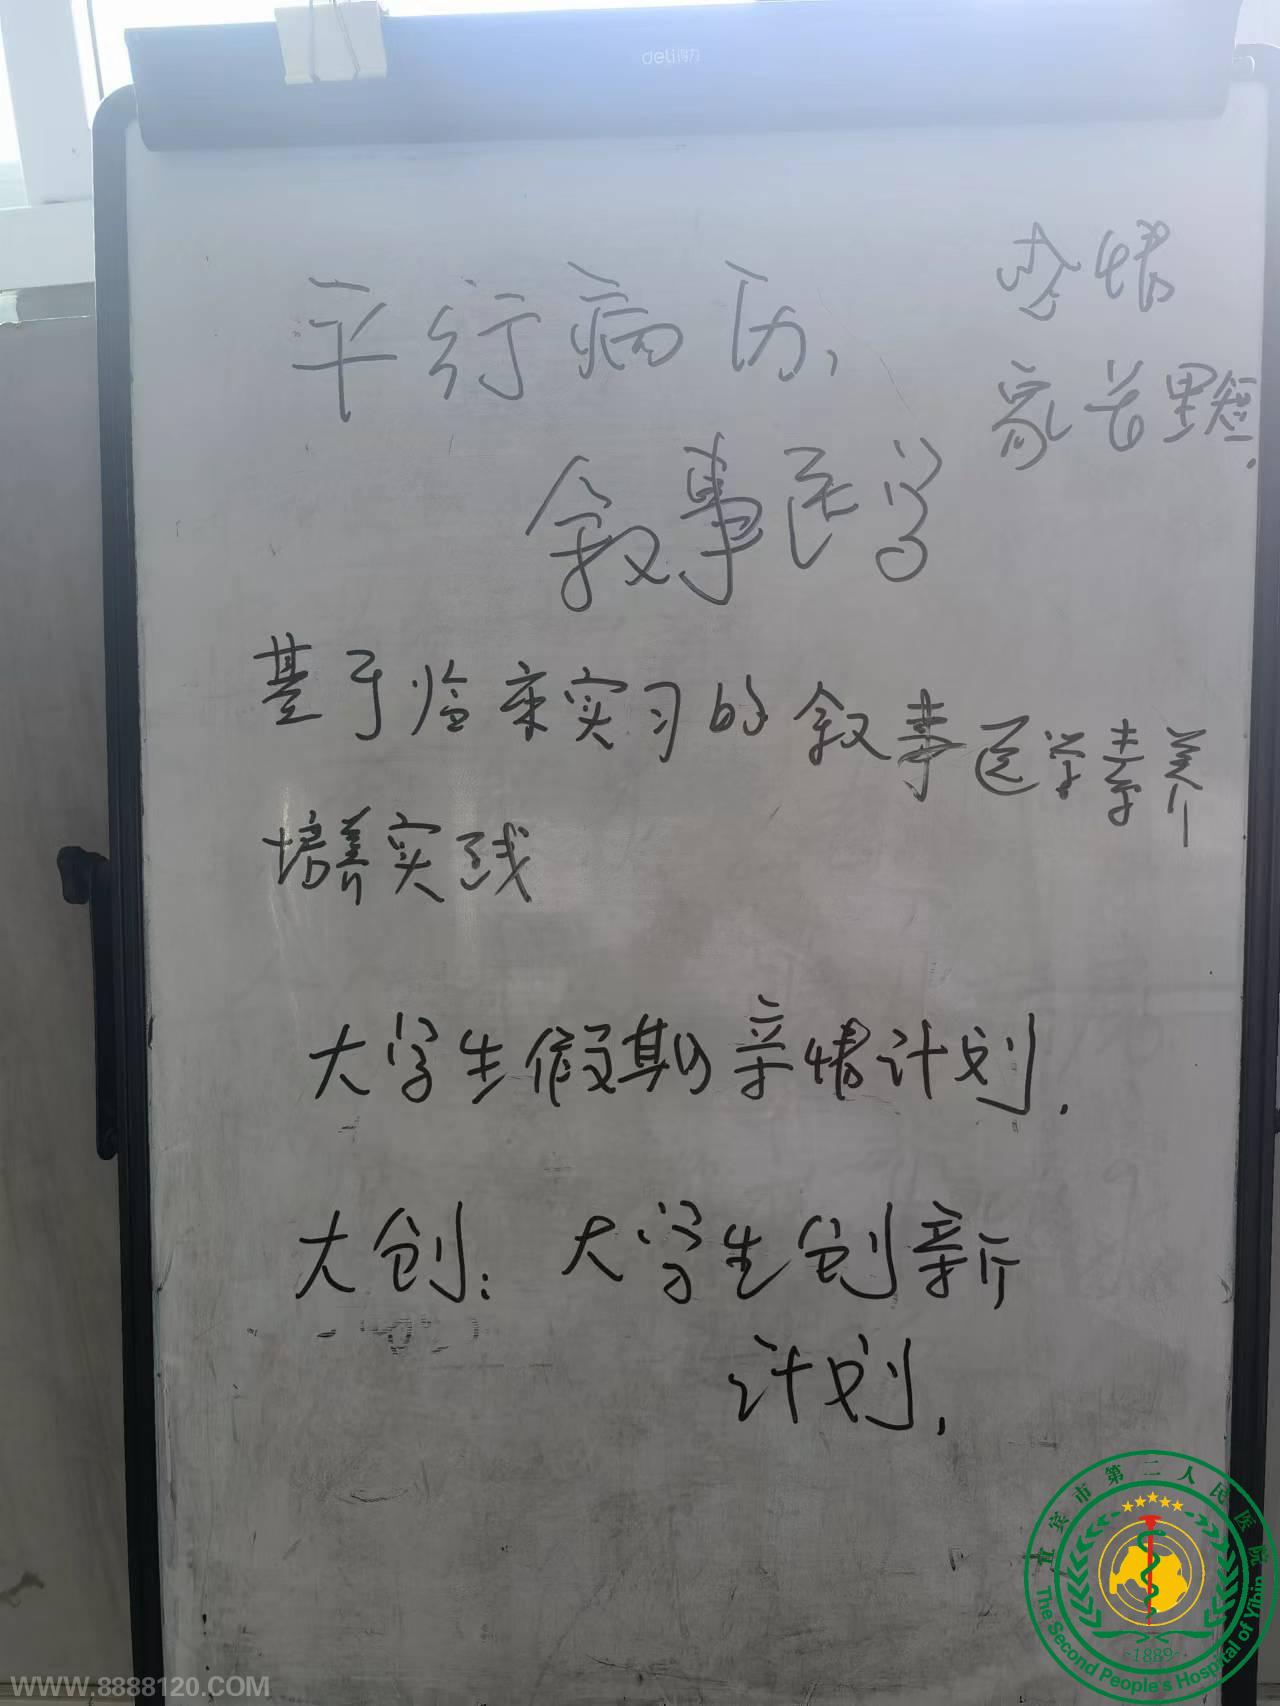 deli得力
平行病历,
叙事医学
亲情
家长里短.
基于临床实习的叙事医学素养
培养实践
大学生假期亲情计划.
大创: 大学生创新
计划.
宜宾市第二人民医院
The Second People's Hospital of Yibin
-1889-
WWW.8888120.COM